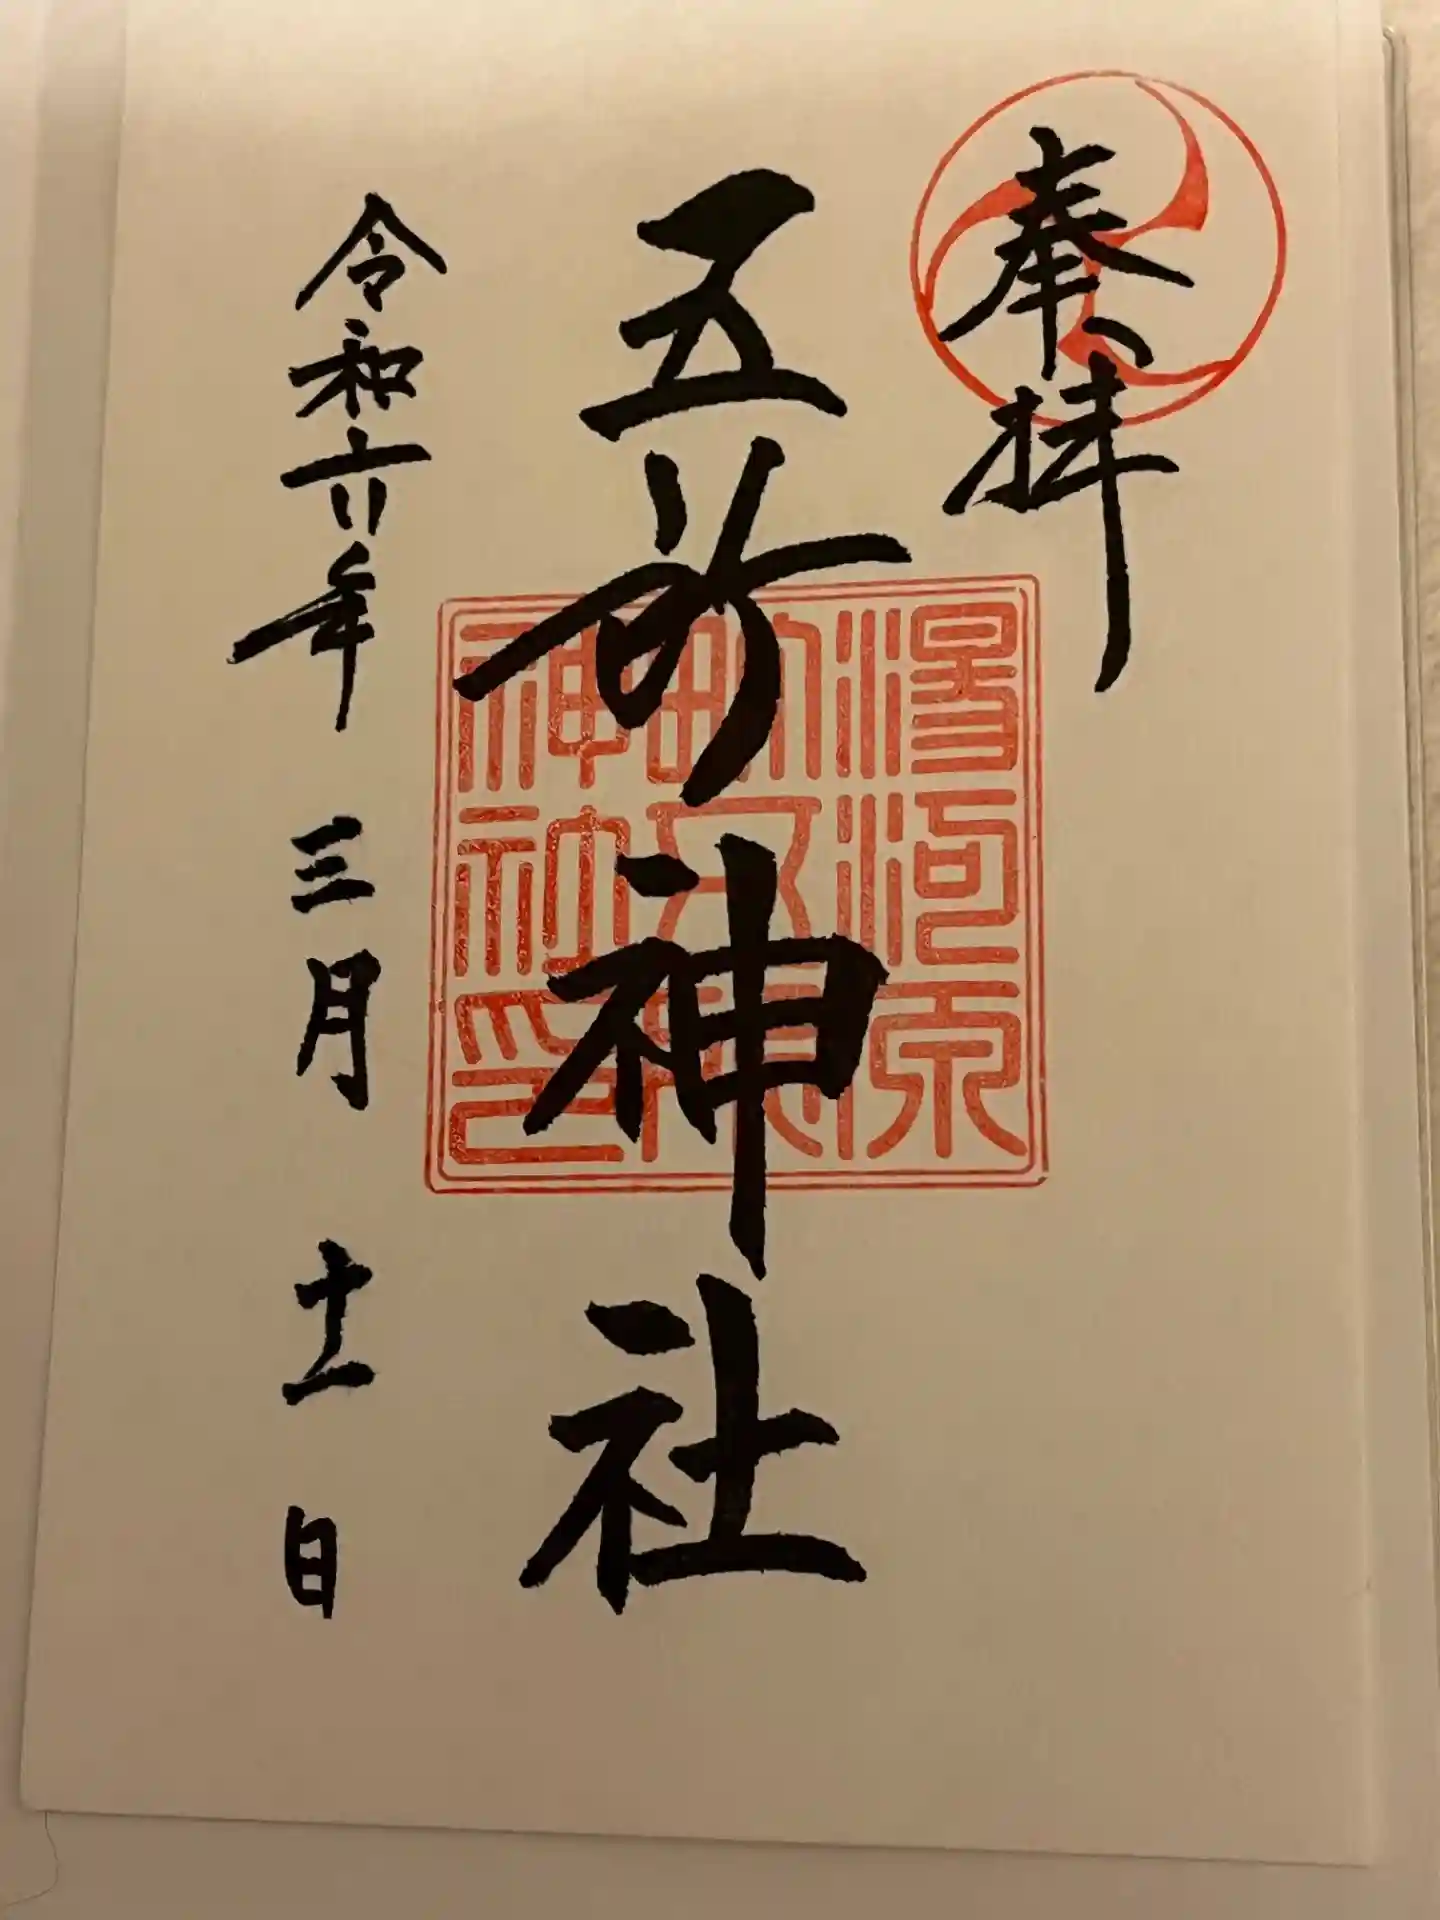 奉拝
五所神社
湯河原
町五所
神社印
令和六年 三月 十一日